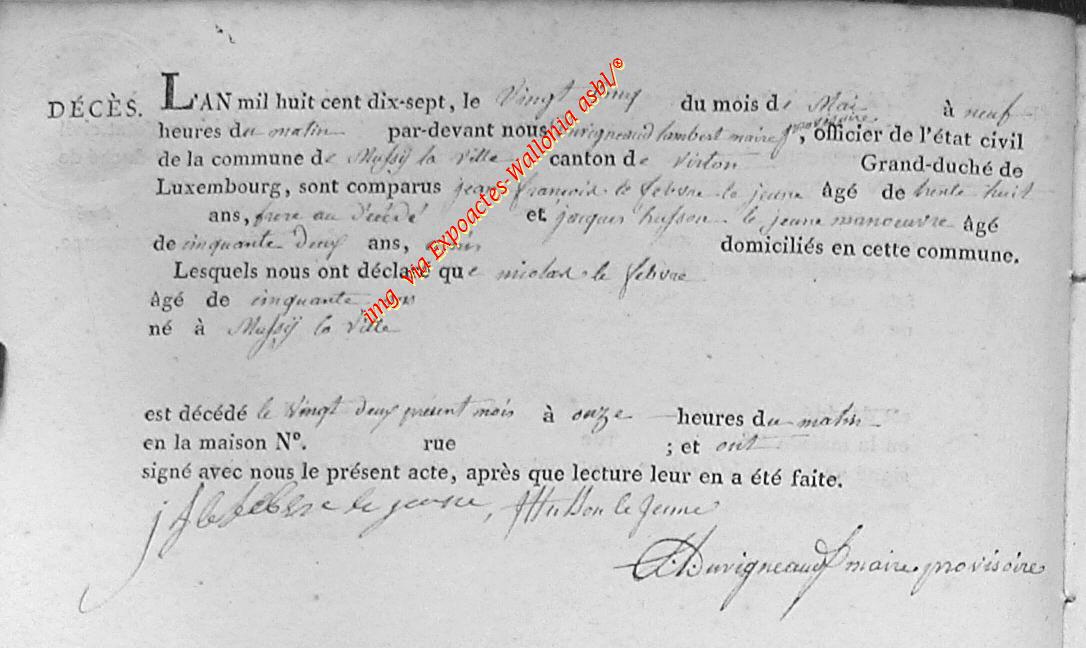 DÉCÈS. L'AN mil huit cent dix-sept, le Vingt cinq du mois de Mai à neuf
heures du matin par-devant nous Duvigneaud lambert maire provisoire, officier de l'état civil
de la commune de Mussÿ la Ville canton de Virton Grand-duché de
Luxembourg, sont comparus jean françois le febvre le jeune âgé de trente huit
ans, frere au Décédé et jacques husson le jeune manoeuvre âgé
de cinquante Deux ans, domiciliés en cette commune.
Lesquels nous ont déclaré que nicolas le febvre
âgé de cinquante ans
né à Mussÿ la Ville
est décédé le Vingt deux présent mois à onze heures du matin
en la maison N°. rue ; et ont
signé avec nous le présent acte, après que lecture leur en a été faite.
jf le febvre le jeune, JHusson le Jeune
Duvigneaud maire provisoire
img via Expoactes-Wallonia asbl/®